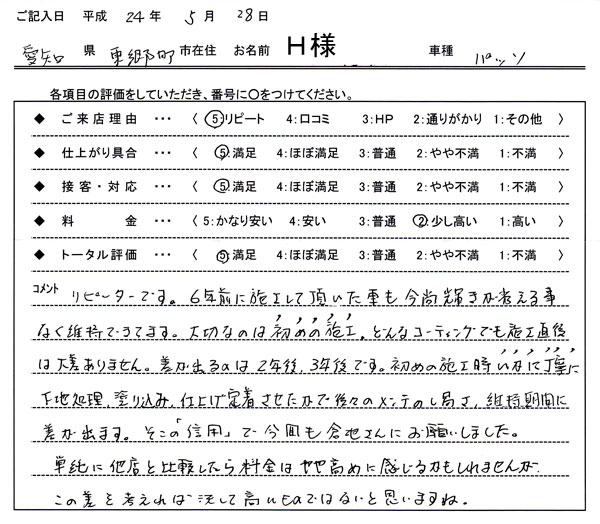 ご記入日 平成 24年 5月 28日
愛知 県 東郷町 市在住 お名前 H様 車種 パッソ
各項目の評価をしていただき、番号に○をつけてください。
◆ ご来店理由 ・・・ 〈 ⑤リピート 4:口コミ 3:HP 2:通りがかり 1:その他 〉
◆ 仕上がり具合 ・・・ 〈 ⑤満足 4:ほぼ満足 3:普通 2:やや不満 1:不満 〉
◆ 接客・対応 ・・・ 〈 ⑤満足 4:ほぼ満足 3:普通 2:やや不満 1:不満 〉
◆ 料金 ・・・ 〈 5:かなり安い 4:安い 3:普通 ②少し高い 1:高い 〉
◆ トータル評価 ・・・ 〈 ⑤満足 4:ほぼ満足 3:普通 2:やや不満 1:不満 〉
コメント リピーターです。6年前に施工して頂いた車も今尚輝きが衰える事
なく維持できてます。大切なのは初めの施工。どんなコーティングでも施工直後
は大差ありません。差が出るのは2年後、3年後です。初めの施工時いかに丁寧に
下地処理、塗り込み、仕上げ定着させたかで後々のメンテのし易さ、維持期間に
差が出ます。そこの「信用」で今回も倉地さんにお願いしました。
単純に他店と比較したら料金はやや高めに感じるかもしれませんが、
この差を考えれば決して高いものではないと思いますね。